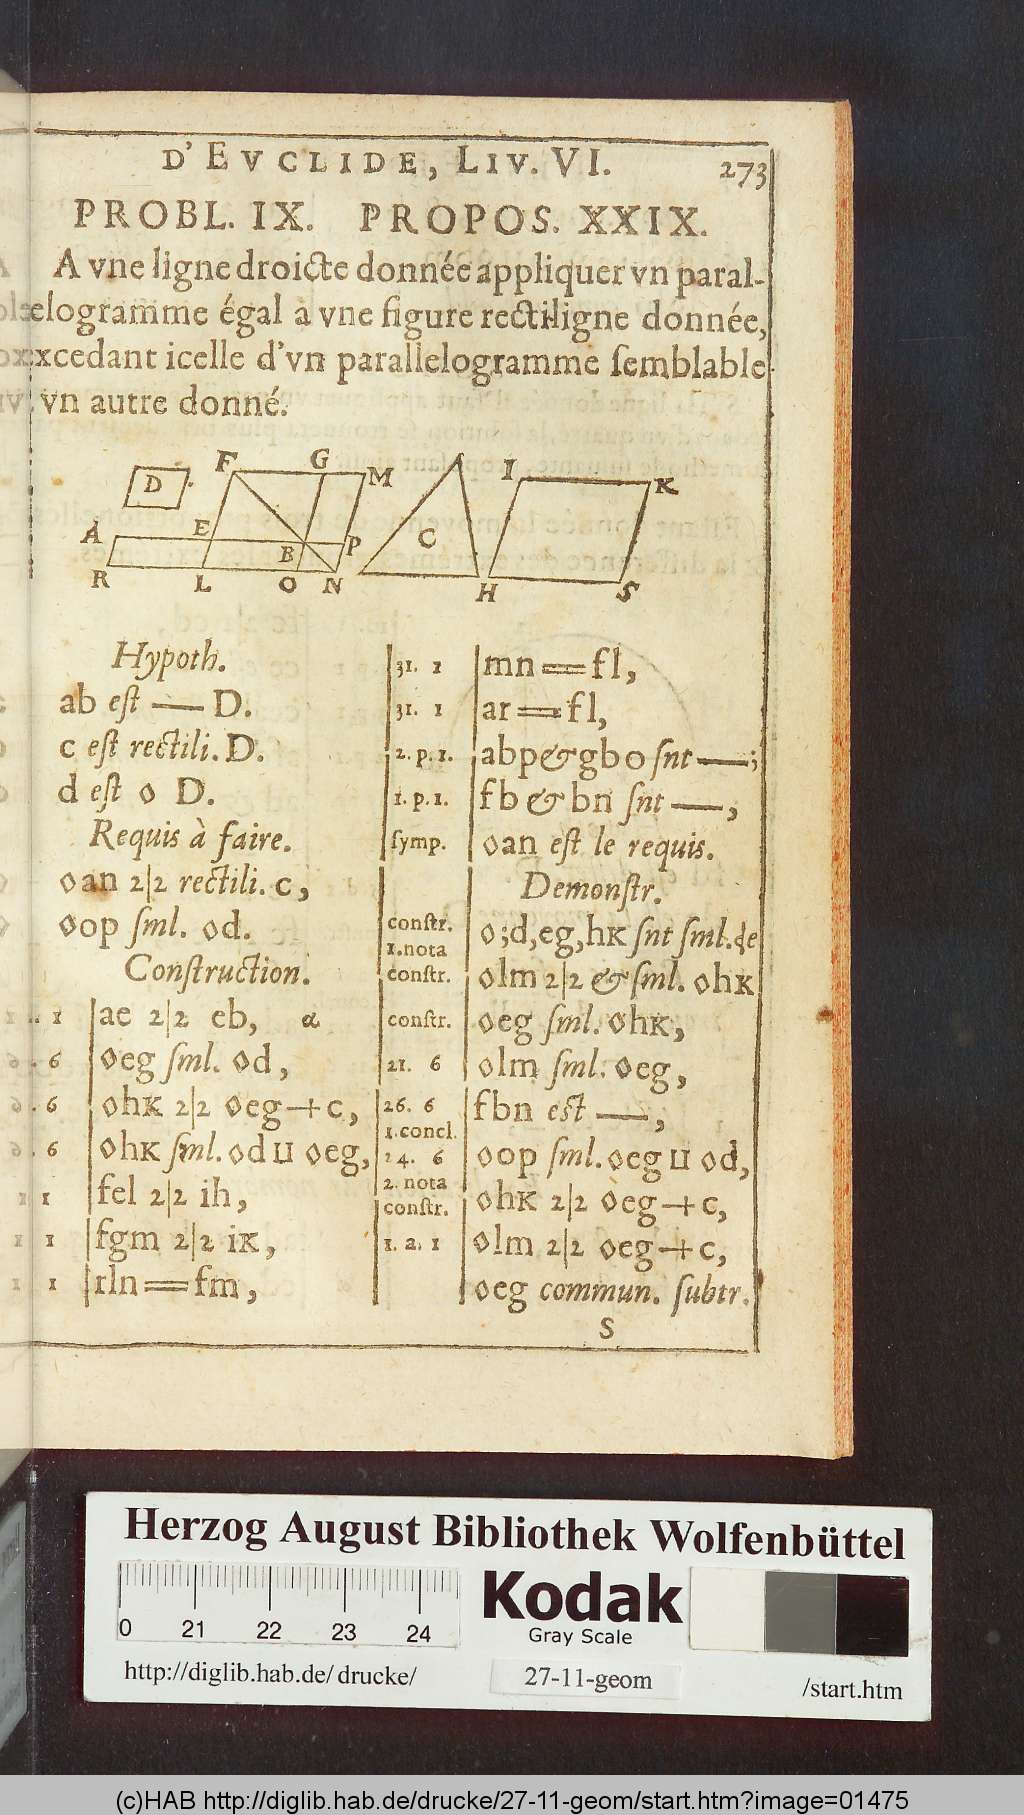 D' EVCLIDE, LIV. VI. 273
PROBL. IX. PROPOS. XXIX.
A vne ligne droicte donnée appliquer vn paral-
elogramme égal a vne figure rectiligne donnée,
xcedant icelle d'vn parallelogramme ſemblable
vn autre donné.
D F G M I K
A E B P C
R L O N H S
Hypoth.
ab eſt — D.
c eſt rectili. D.
d eſt ◊ D.
Requis à faire.
◊an 2|2 rectili. c,
◊op ſml. ◊d.
Conſtruction.
1 .. 1 |ae 2|2 eb, α
6 . 6 |◊eg ſml. ◊d,
6 . 6 |◊hk 2|2 ◊eg + c,
6 . 6 |◊hk ſml. ◊d ⊔ ◊eg,
1 1 |fel 2|2 ih,
1 1 |fgm 2|2 ik,
1 1 |rln = fm,
31. 1 |mn = fl,
31. 1 |ar = fl,
2. p. 1. |abp & gbo ſnt —;
1. p. 1. |fb & bn ſnt —,
ſymp. |◊an eſt le requis.
Demonſtr.
conſtr. |◊;d,eg,hk ſnt ſml. de
1. nota
conſtr. |◊lm 2|2 & ſml. ◊hk
conſtr. |◊eg ſml. ◊hk,
21. 6 |◊lm ſml. ◊eg,
26. 6 |fbn est —,
1. concl.
24. 6 |◊op ſml. ◊eg ⊔ ◊d,
2. nota
conſtr. |◊hk 2|2 ◊eg + c,
1. a. 1 |◊lm 2|2 ◊eg + c,
◊eg commun. ſubtr.
S
Herzog August Bibliothek Wolfenbüttel
0 21 22 23 24
Kodak
Gray Scale
http://diglib.hab.de/drucke/ 27-11-geom /start.htm
(c)HAB http://diglib.hab.de/drucke/27-11-geom/start.htm?image=01475